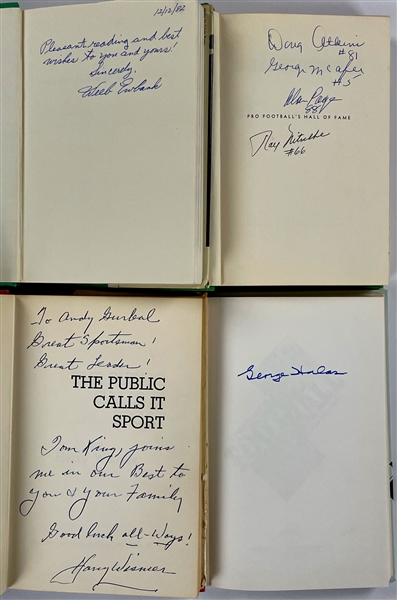 12/12/82
Pleasant reading and best
wishes to you and yours!
Sincerly,
Weeb Ewbank
Doug Atkins
#81
George McAfee
#5
Alan Page
88
PRO FOOTBALL'S HALL OF FAME
Ray Nitschke
#66
To Andy Gurbal
Great Sportsman!
Great Leader!
THE PUBLIC
CALLS IT
SPORT
Tom King, joins
me in our Best to
you & your Family
Good luck all-Ways!
Harry Wismer
George Halas